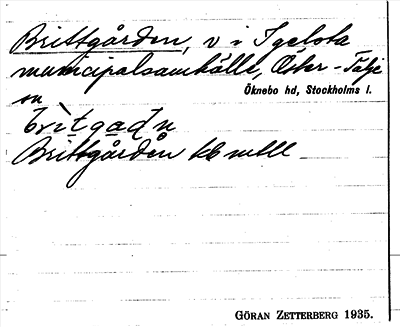 Brittgården, v i Igelsta
municipalsamhälle, Öster-Tälje
sn
Öknebo hd, Stockholms l.
britgađn
Brittgården kb mtll
GÖRAN ZETTERBERG 1935.